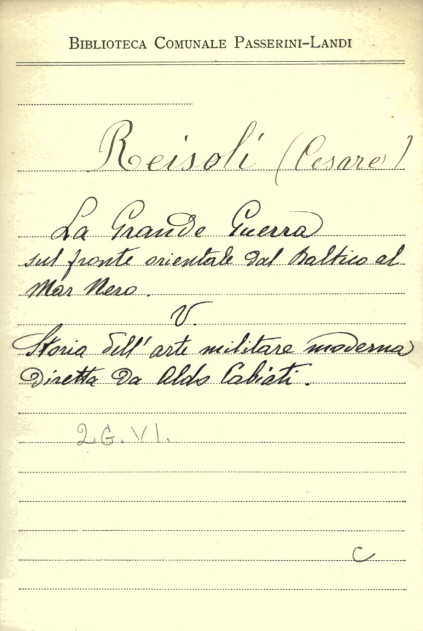 BIBLIOTECA COMUNALE PASSERINI-LANDI
Reisoli (Cesare)
La Grande Guerra
sul fronte orientale dal Baltico al
Mar Nero.
V.
Storia dell'arte militare moderna
diretta da Aldo Cabiati.
2G.VI.
C